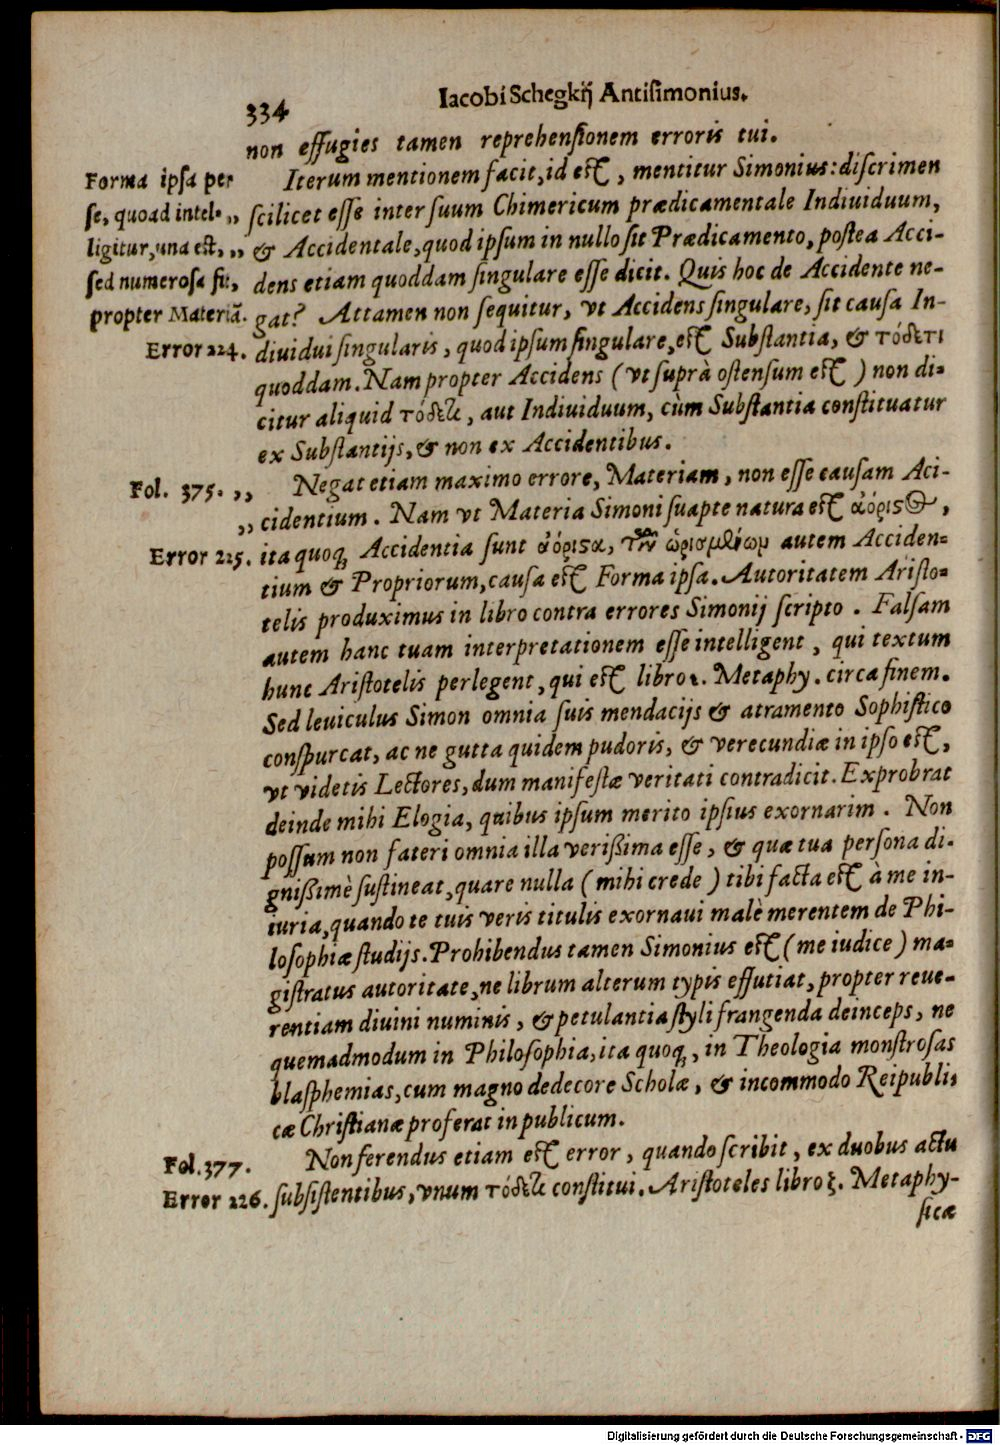 334
Iacobi Schegkij Antisimonius.
non effugies tamen reprehensionem erroris tui.
Forma ipsa per
se, quoad intel- „
ligitur, una est, „
sed numerosa fit,
propter Materiã.
Error 224.
Iterum mentionem facit, id est, mentitur Simonius: discrimen
scilicet esse inter suum Chimericum prædicamentale Indiuiduum,
& Accidentale, quod ipsum in nullo sit Prædicamento, postea Acci-
dens etiam quoddam singulare esse dicit. Quis hoc de Accidente ne-
gat? Attamen non sequitur, vt Accidens singulare, sit causa In-
diuidui singularis, quod ipsum singulare, est Substantia, & τόδετι
quoddam. Nam propter Accidens (vt suprà ostensum est) non di-
citur aliquid τόδετι, aut Indiuiduum, cùm Substantia constituatur
ex Substantijs, & non ex Accidentibus.
Fol. 375. „
„
Error 225.
Negat etiam maximo errore, Materiam, non esse causam Aci-
cidentium. Nam vt Materia Simoni suapte natura est ἀόριστος,
ita quoq; Accidentia sunt ἀόριστα, τῶν ὡρισμένων autem Acciden-
tium & Propriorum, causa est Forma ipsa. Autoritatem Aristo-
telis produximus in libro contra errores Simonij scripto. Falsam
autem hanc tuam interpretationem esse intelligent, qui textum
hunc Aristotelis perlegent, qui est libro Metaphy. circa finem.
Sed leuiculus Simon omnia suis mendacijs & atramento Sophistico
conspurcat, ac ne gutta quidem pudoris, & verecundiæ in ipso est,
vt videtis Lectores, dum manifestæ veritati contradicit. Exprobrat
deinde mihi Elogia, quibus ipsum merito ipsius exornarim. Non
possum non fateri omnia illa verißima esse, & quæ tua persona di-
gnißimè sustineat, quare nulla (mihi crede) tibi facta est à me in-
iuria, quando te tuis veris titulis exornaui malè merentem de Phi-
losophiæ studijs. Prohibendus tamen Simonius est (me iudice) ma-
gistratus autoritate, ne librum alterum typis effutiat, propter reue-
rentiam diuini numinis, & petulantia styli frangenda deinceps, ne
quemadmodum in Philosophia, ita quoq;, in Theologia monstrosas
blasphemias, cum magno dedecore Scholæ, & incommodo Reipubli-
cæ Christianæ proferat in publicum.
Fol. 377.
Error 226.
Non ferendus etiam est error, quando scribit, ex duobus actu
subsistentibus, vnum τόδετι constitui. Aristoteles libro ξ. Metaphy-
sicæ
Digitalisierung gefördert durch die Deutsche Forschungsgemeinschaft - DFG